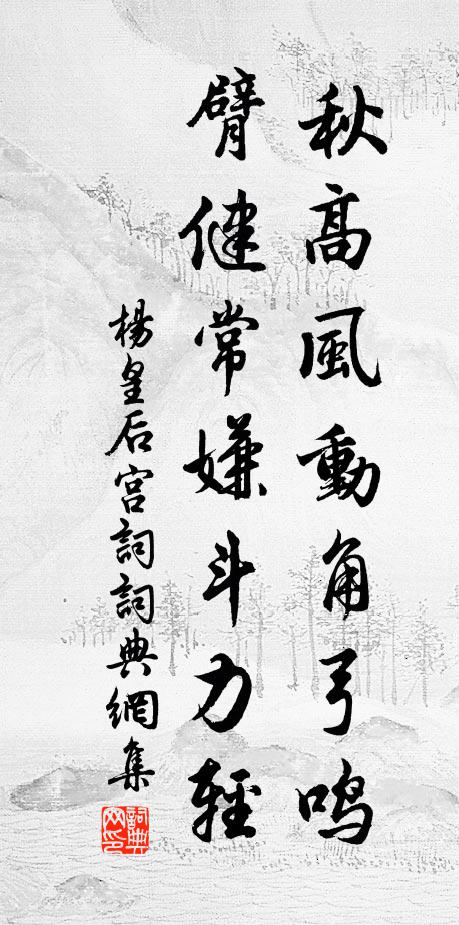 秋高風動角弓鸣
臂健常嫌斗力輕
楊皇后宫詞詞典網集
詞典網印